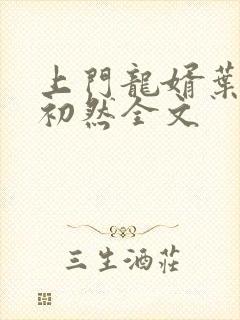 上門龍婿葉
初然全文
三生酒莊